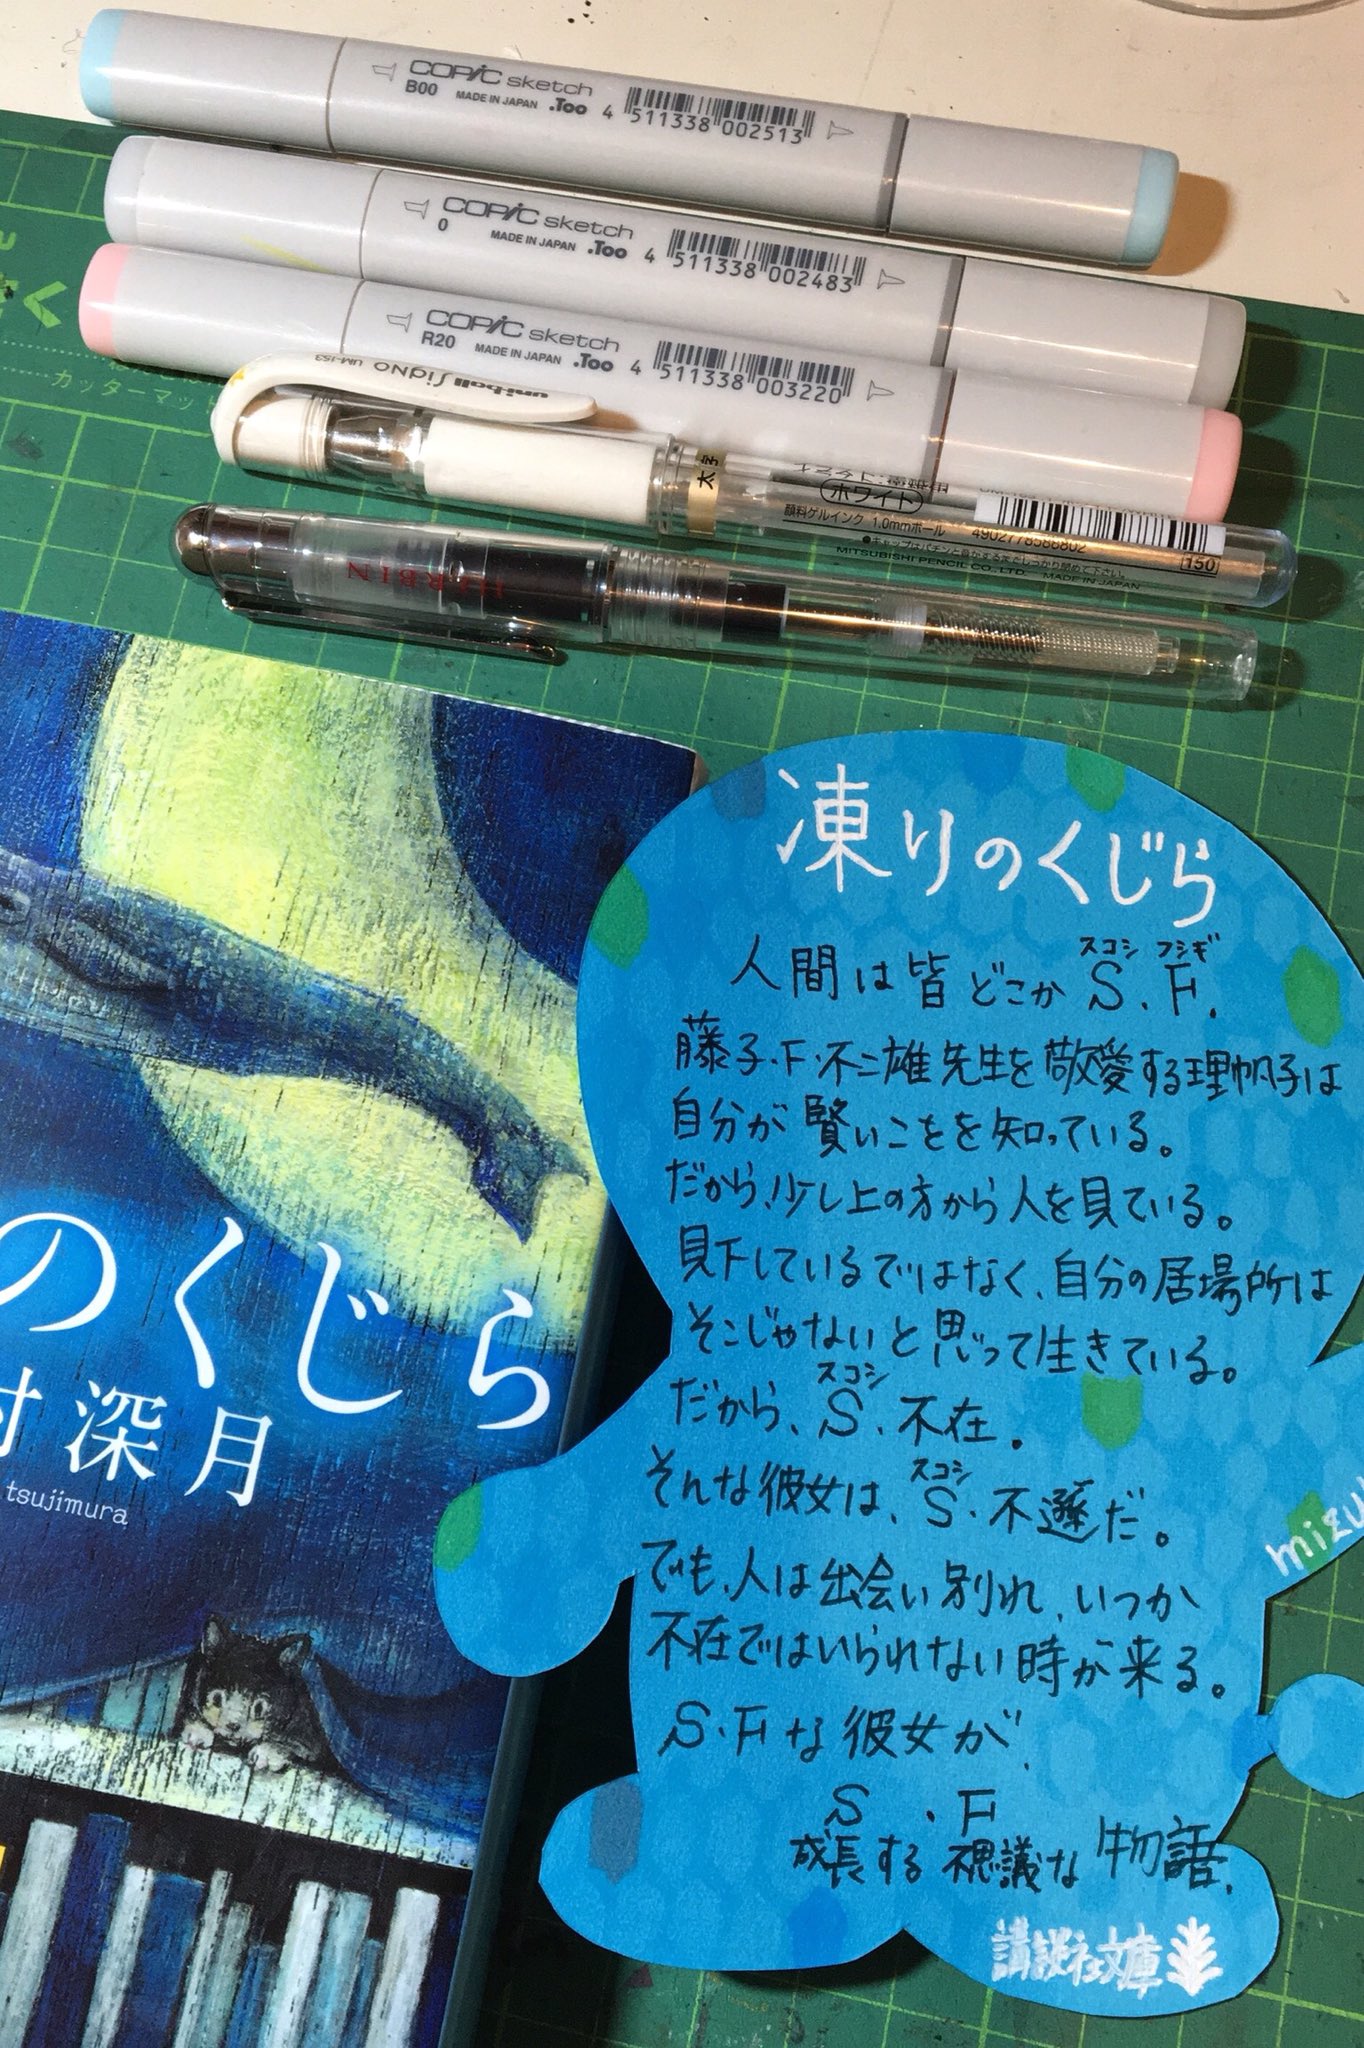 COPIC sketch
B00 MADE IN JAPAN .Too 4 511338 002513
COPIC sketch
0 MADE IN JAPAN .Too 4 511338 002483
COPIC sketch
R20 MADE IN JAPAN .Too 4 511338 003220
カッターマッ
uni-ball SigNo UM-153
太字
ホワイト
顔料ゲルインク 1.0mmボール 4902778588802
●キャップはパチンと音がするまでしっかり閉めて下さい。
MITSUBISHI PENCIL CO., LTD. MADE IN JAPAN
150
HERBIN
のくじら
村深月
tsujimura
凍りのくじら
スコシ フシギ
人間は皆どこかS.F.
藤子・F・不二雄先生を敬愛する理帆子は
自分が賢いことを知っている。
だから、少し上の方から人を見ている。
見下しているではなく、自分の居場所は
そこじゃないと思って生きている。
スコシ
だから、S・不在。
スコシ
そんな彼女は、S・不遜だ。
でも、人は出会い別れ、いつか
不在ではいられない時が来る。
S・Fな彼女が、
S・F
成長する不思議な物語。
mizu
講談社文庫